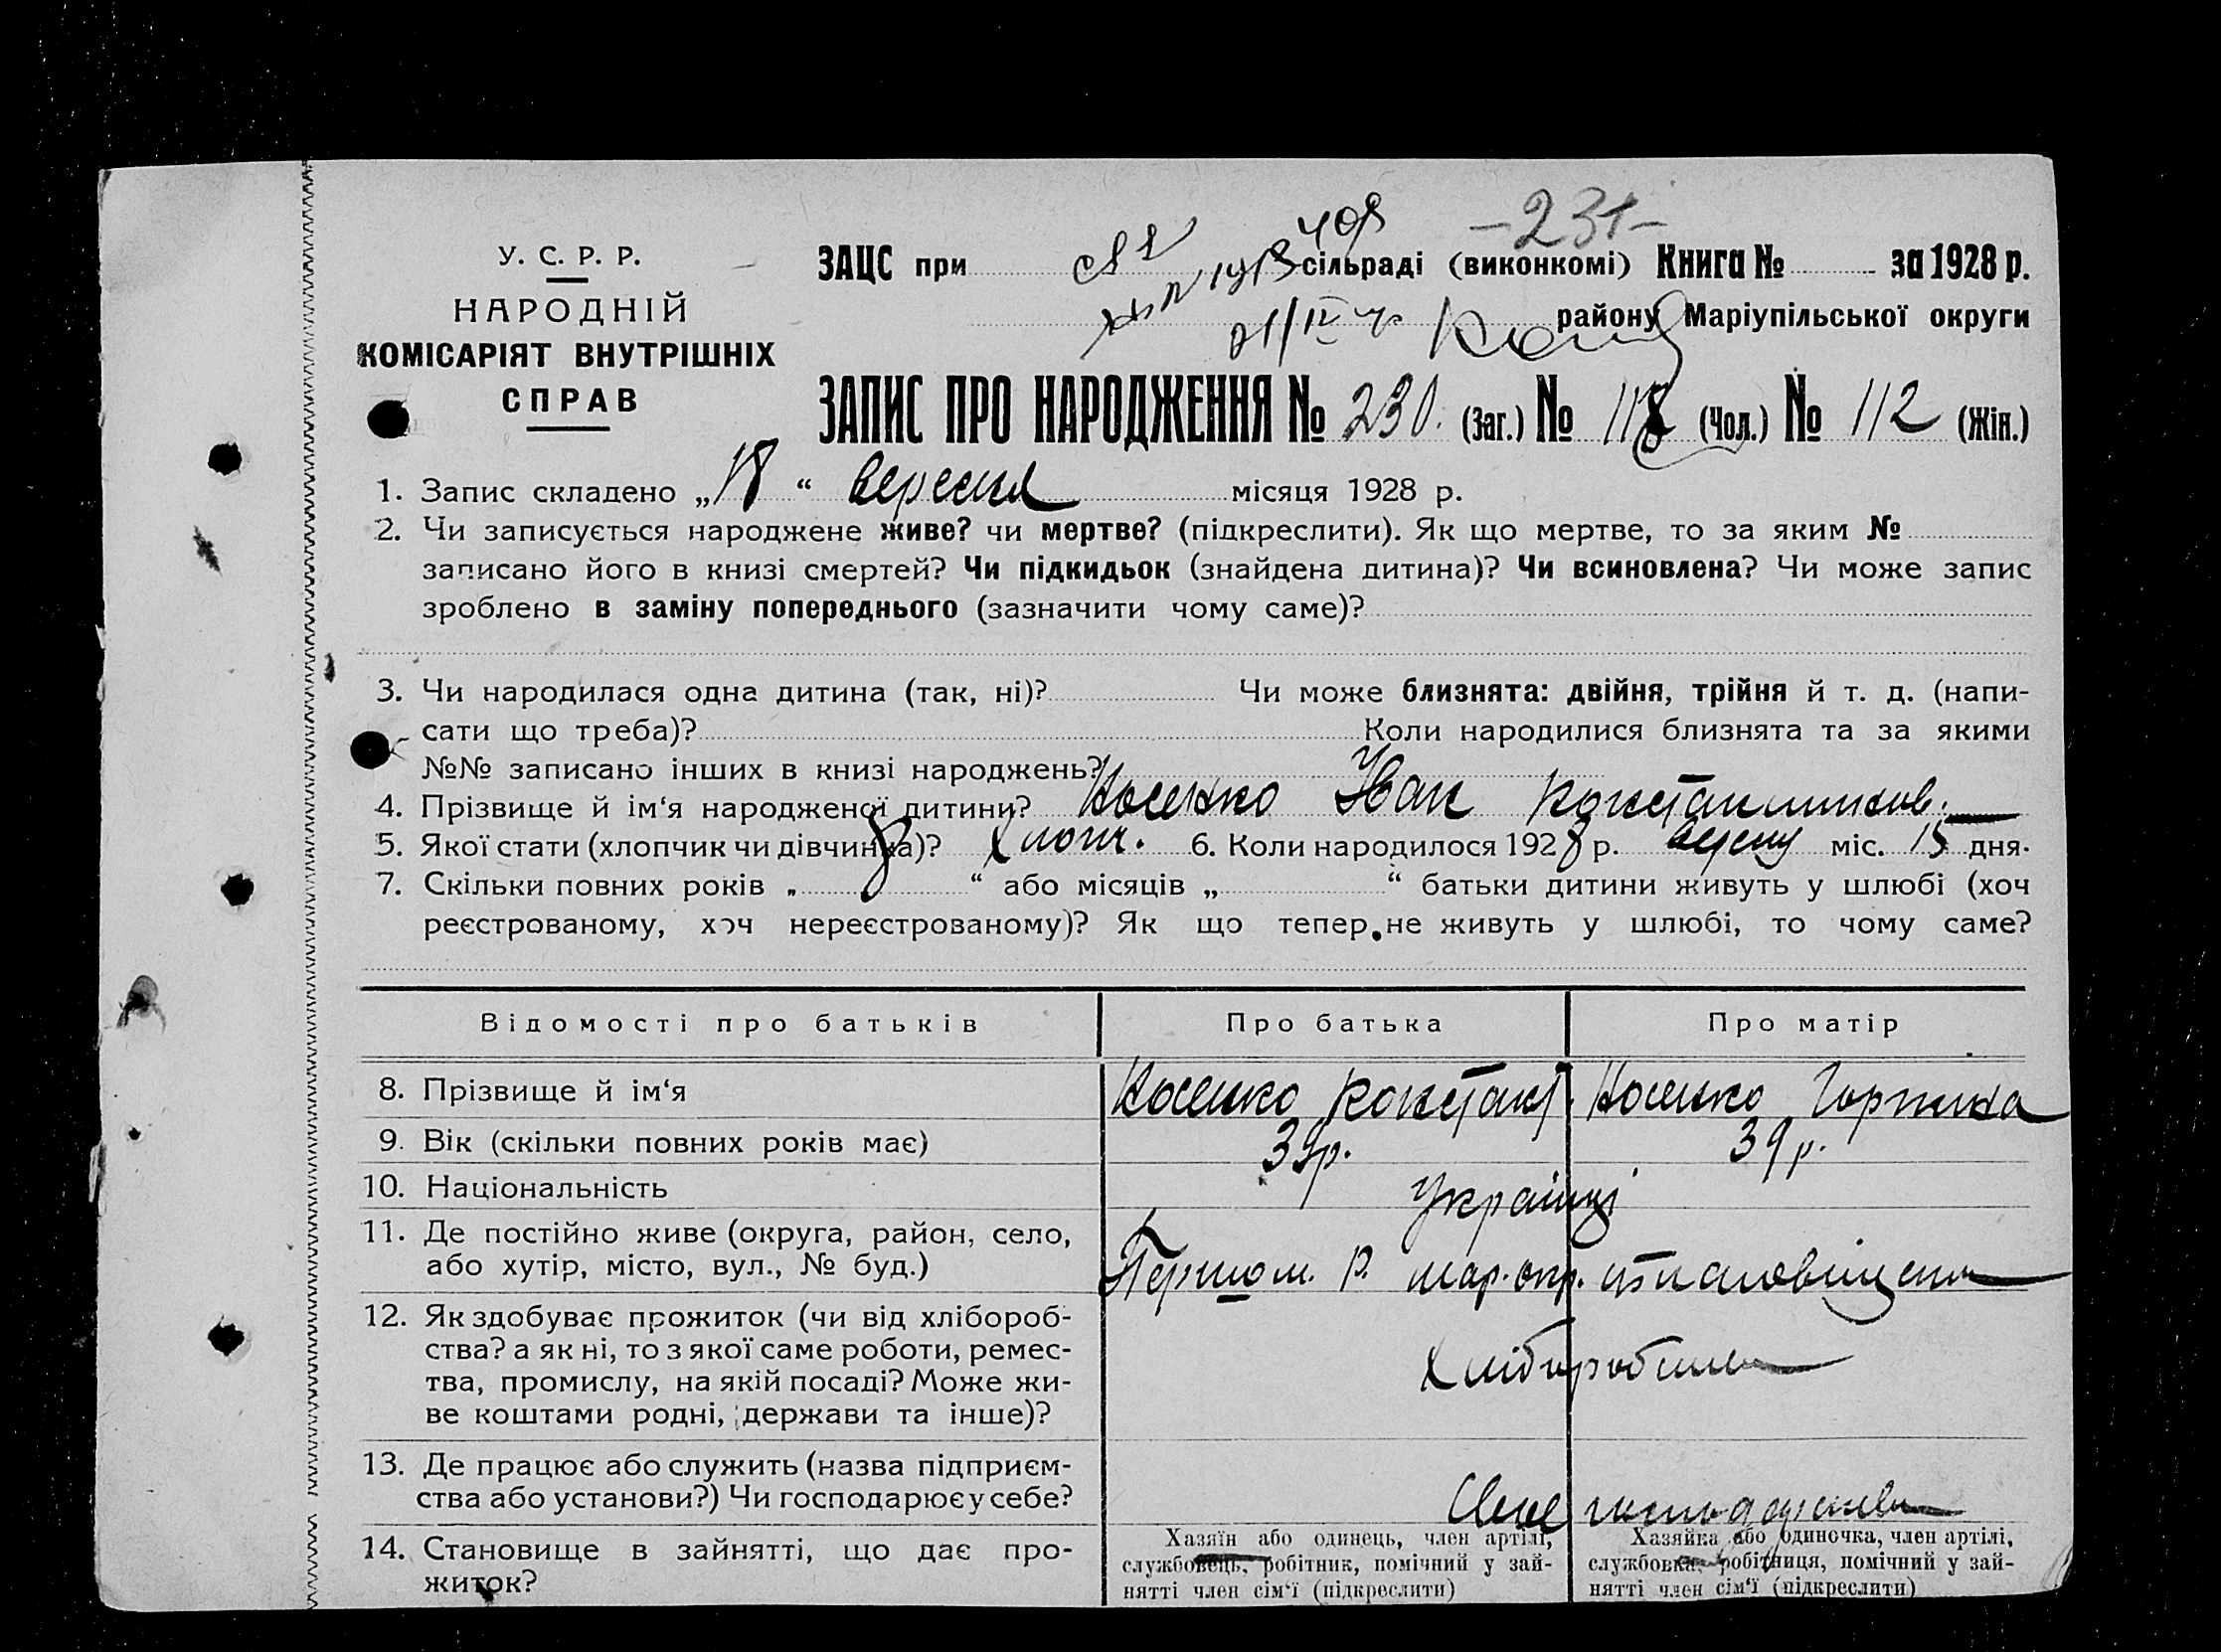 -231-
У. С. Р. Р.
НАРОДНІЙ
КОМІСАРІЯТ ВНУТРІШНІХ
СПРАВ
ЗАЦС при сільраді (виконкомі) Книга № за 1928 р.
району Маріупільської округи
ЗАПИС ПРО НАРОДЖЕННЯ № 230. (Заг.) № 118 (Чол.) № 112 (Жін.)
1. Запис складено „18“ вересня місяця 1928 р.
2. Чи записується народжене живе? чи мертве? (підкреслити). Як що мертве, то за яким №
записано його в книзі смертей? Чи підкидьок (знайдена дитина)? Чи всиновлена? Чи може запис
зроблено в заміну попереднього (зазначити чому саме)?
3. Чи народилася одна дитина (так, ні)? Чи може близнята: двійня, трійня й т. д. (напи-
сати що треба)? Коли народилися близнята та за якими
№№ записано інших в книзі народжень?
4. Прізвище й ім‘я народженої дитини? Носенко Іван Константинов.
5. Якої стати (хлопчик чи дівчинка)? Хлопч. 6. Коли народилося 1928 р. вересня міс. 15 дня.
7. Скільки повних років „8“ або місяців „ “ батьки дитини живуть у шлюбі (хоч
реєстрованому, хоч нереєстрованому)? Як що тепер не живуть у шлюбі, то чому саме?
Відомості про батьків Про батька Про матір
8. Прізвище й ім‘я Носенко Констант. Носенко Горпина
9. Вік (скільки повних років має) 39р. 39р.
10. Національність Українці
11. Де постійно живе (округа, район, село,
або хутір, місто, вул., № буд.) Першом. р. мар. окр.
12. Як здобуває прожиток (чи від хлібороб-
ства? а як ні, то з якої саме роботи, ремес-
тва, промислу, на якій посаді? Може жи-
ве коштами родні, держави та інше)?
13. Де працює або служить (назва підприєм-
ства або установи?) Чи господарює у себе?
14. Становище в зайнятті, що дає про-
житок?
Хазяїн або одинець, член артілі,
службовець, робітник, помічний у зай-
нятті член сім‘ї (підкреслити)
Хазяйка або одиночка, член артілі,
службовка, робітниця, помічний у зай-
нятті член сім‘ї (підкреслити)